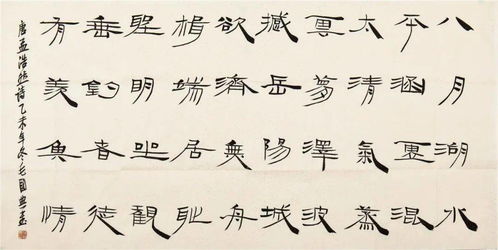 八月湖水
平涵虛混
太清氣蒸
雲夢澤波
撼岳陽城
欲濟無舟
楫端居恥
聖明坐觀
垂釣者徒
有羨魚情
唐孟浩然詩乙未年冬毛国典書